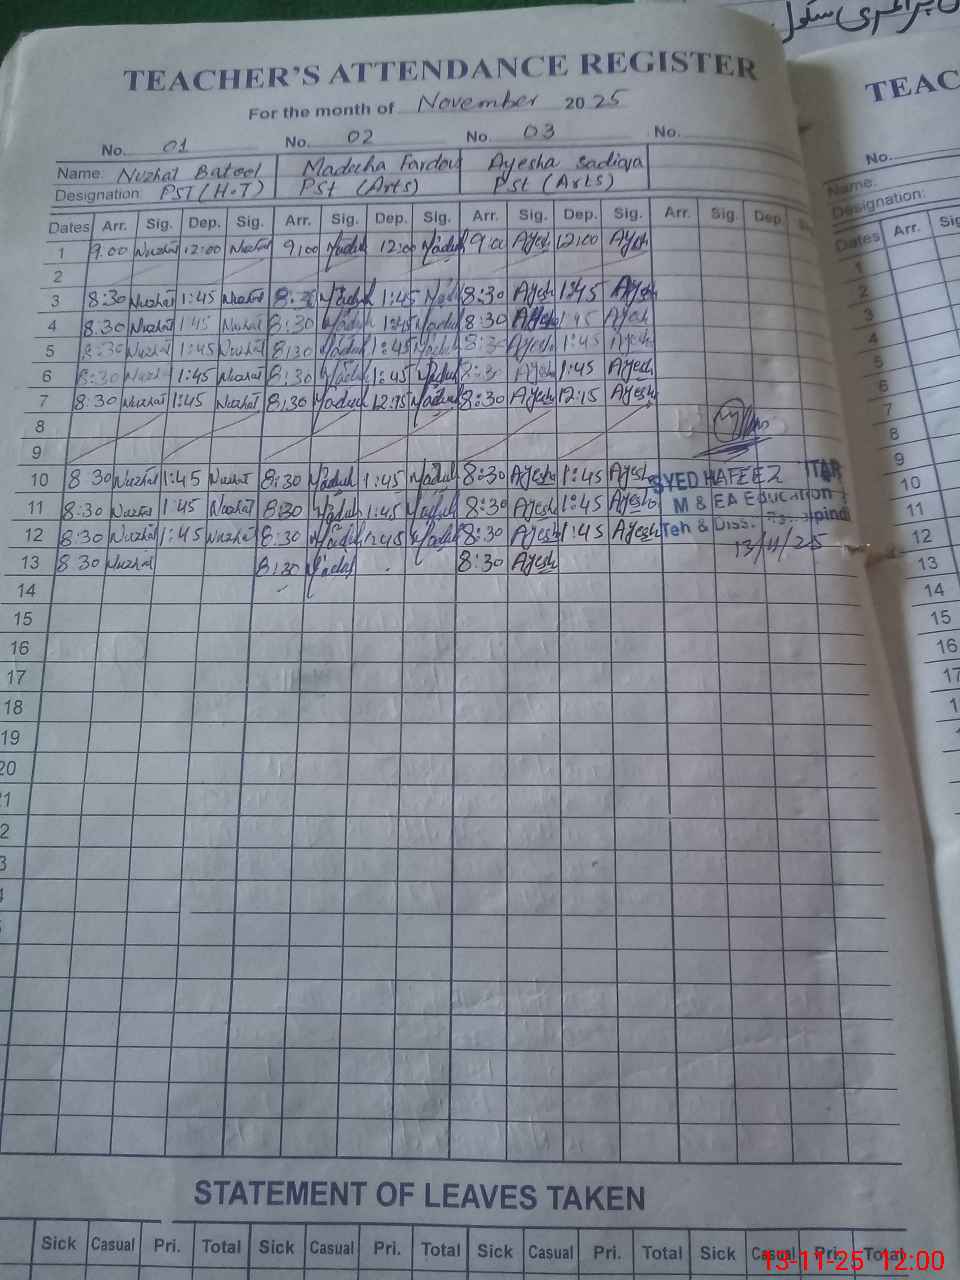 پرائمری سکول
TEACHER'S ATTENDANCE REGISTER
For the month of November 2025
No. 01 No. 02 No. 03 No.
Name: Nuzhat Bateol Madeeha Ayesha Sadiqa
Designation: PST (H.T) PST (Arts) PST (Arts)
Dates Arr. Sig. Dep. Sig. Arr. Sig. Dep. Sig. Arr. Sig. Dep. Sig. Arr. Sig. Dep.
1 9:00 Nuzhat 12:00 Nuzhat 9:00 12:00 9:00 Ayesh 12:00 Ayesh
2
3 8:30 Nuzhat 1:45 Nuzhat 1:45 8:30 Ayesh 1:45 Ayesh
4 8:30 Nuzhat 1:45 Nuzhat 8:30 1:45 8:30 Ayesh 1:45 Ayesh
5 8:30 Nuzhat 1:45 Nuzhat 8:30 1:45 8:30 Ayesh 1:45 Ayesh
6 8:30 Nuzhat 1:45 Nuzhat 8:30 1:45 8:30 Ayesh 1:45 Ayesh
7 8:30 Nuzhat 1:45 Nuzhat 8:30 8:30 Ayesh 12:15 Ayesh
8
9
10 8 30 Nuzhat 1:45 Nuzhat 8:30 1:45 8:30 Ayesh 1:45 Ayesh
SYED HAFEEZ
11 8:30 Nuzhat 1:45 Nuzhat 8:30 1:45 8:30 Ayesh 1:45 Ayesh
M & EA Education
12 8:30 Nuzhat 1:45 Nuzhat 8:30 1:45 8:30 Ayesh 1:45 Ayesh
Teh & Diss.
13/11/25
13 8:30 Nuzhat 8:30 8:30 Ayesh
14
15
16
17
18
19
20
STATEMENT OF LEAVES TAKEN
Sick Casual Pri. Total Sick Casual Pri. Total Sick Casual Pri. Total Sick Casual Pri. Total
13-11-25 12:00
TEAC
No.
Name:
Designation:
Dates Arr. Sig
1
2
3
4
5
6
7
8
9
10
11
12
13
14
15
16
17